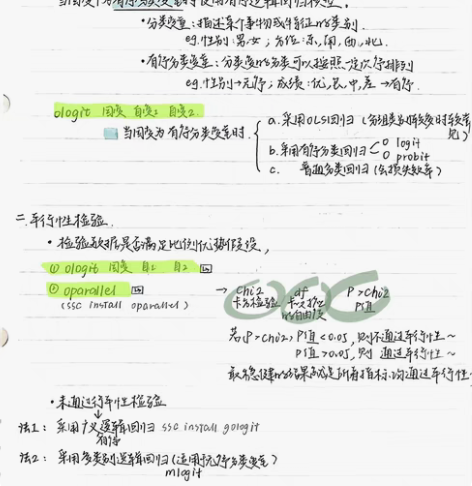 当因变量为有序分类变量时使用有序逻辑回归模型。
• 分类变量：描述某个事物或特征的类别
eg. 性别：男、女；方位：东、南、西、北.
• 有序分类变量：分类变量的分类可以按照一定次序排列
eg. 性别→无序；成绩：优、良、中、差→有序.
ologit 因变 自变1 自变2
当因变为有序分类变量时.
a. 采用OLS回归（分组类别较多时较常见）
b. 采用有序分类回归 logit
probit
c. 普通分类回归（会损失效率）
二. 平行性检验.
• 检验数据是否满足比例优势假设,
① ologit 因变 自1 自2
② oparallel → chi2 df P>chi2
(ssc install oparallel) 卡方检验 卡方检验的自由度 P值
若P>chi2, P值<0.05, 则不通过平行性~
P值>0.05, 则 通过平行性~
最稳健的结果就是所有指标均通过平行性~
• 未通过平行性检验
法1: 采用广义有序逻辑回归 ssc install gologit
法2: 采用多类别逻辑回归（适用于无序分类变量）
mlogit